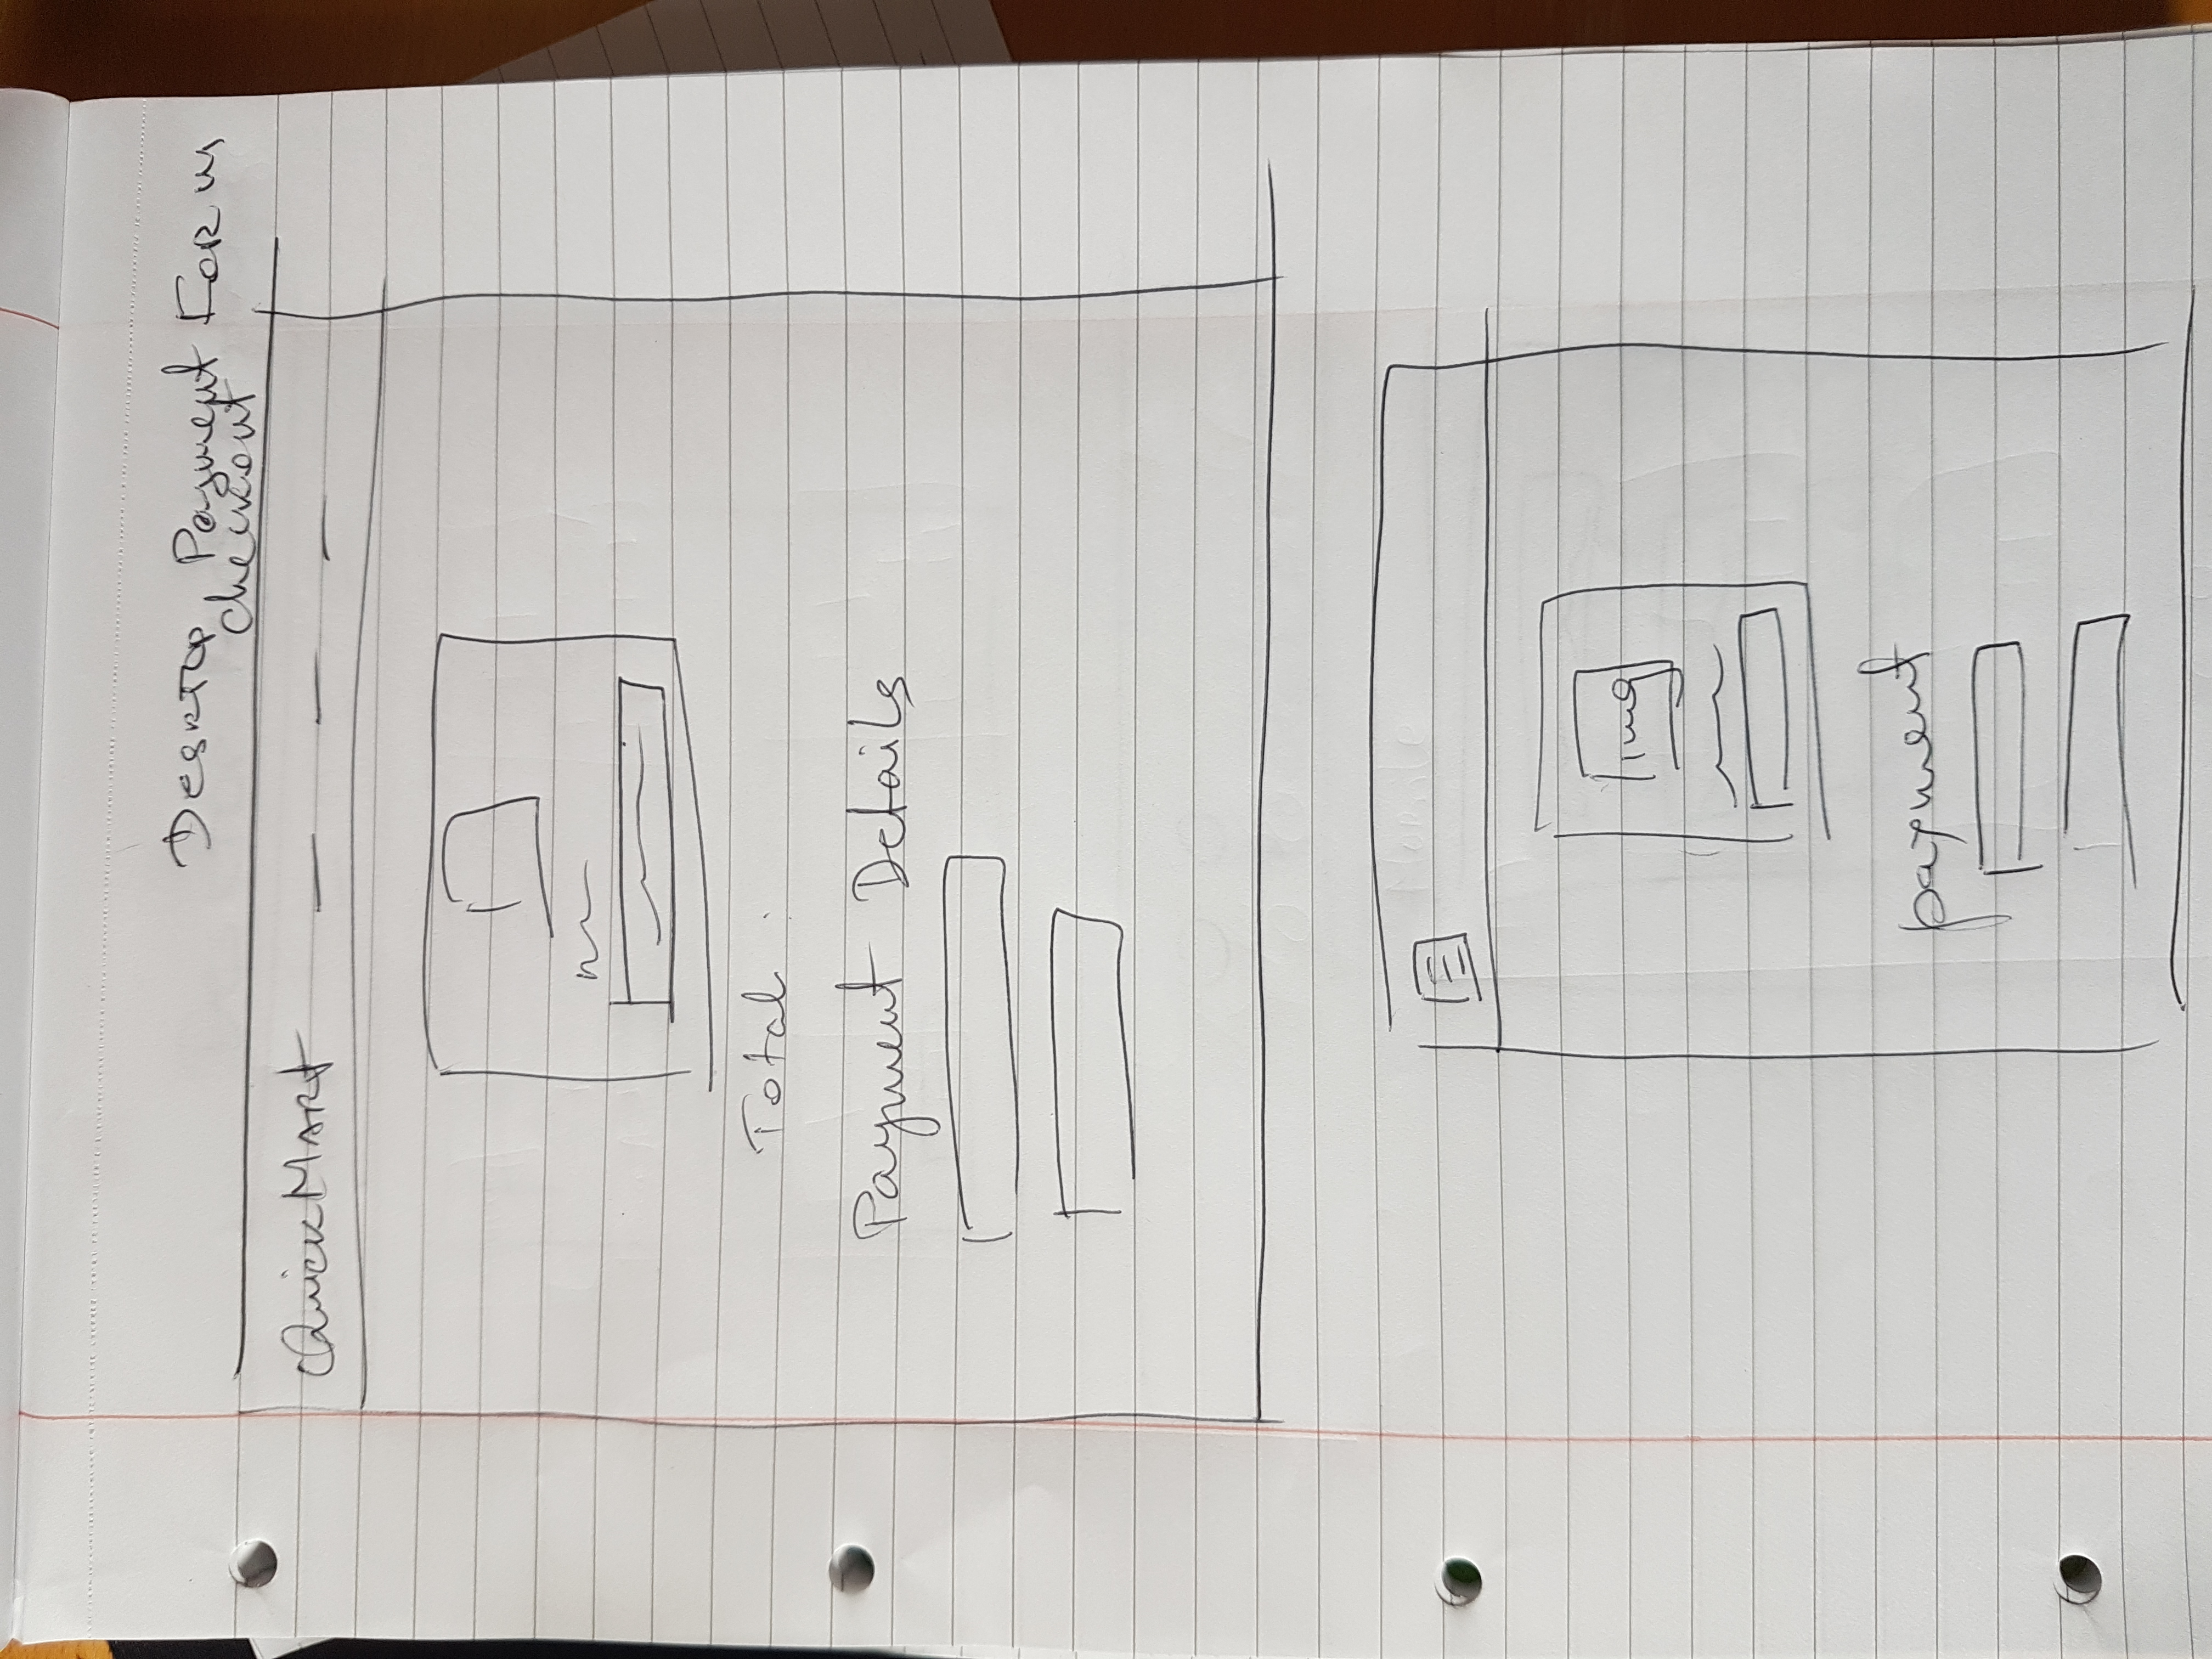 Desktop, Payment Form
checkout
QuickMart
Total :
Payment Details
img
payment